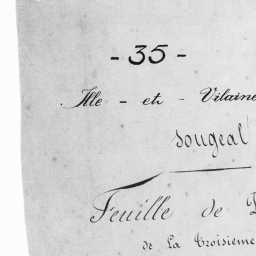 - 35 -
Ille - et - Vilaine
Sougeal
Feuille de
de la troisième